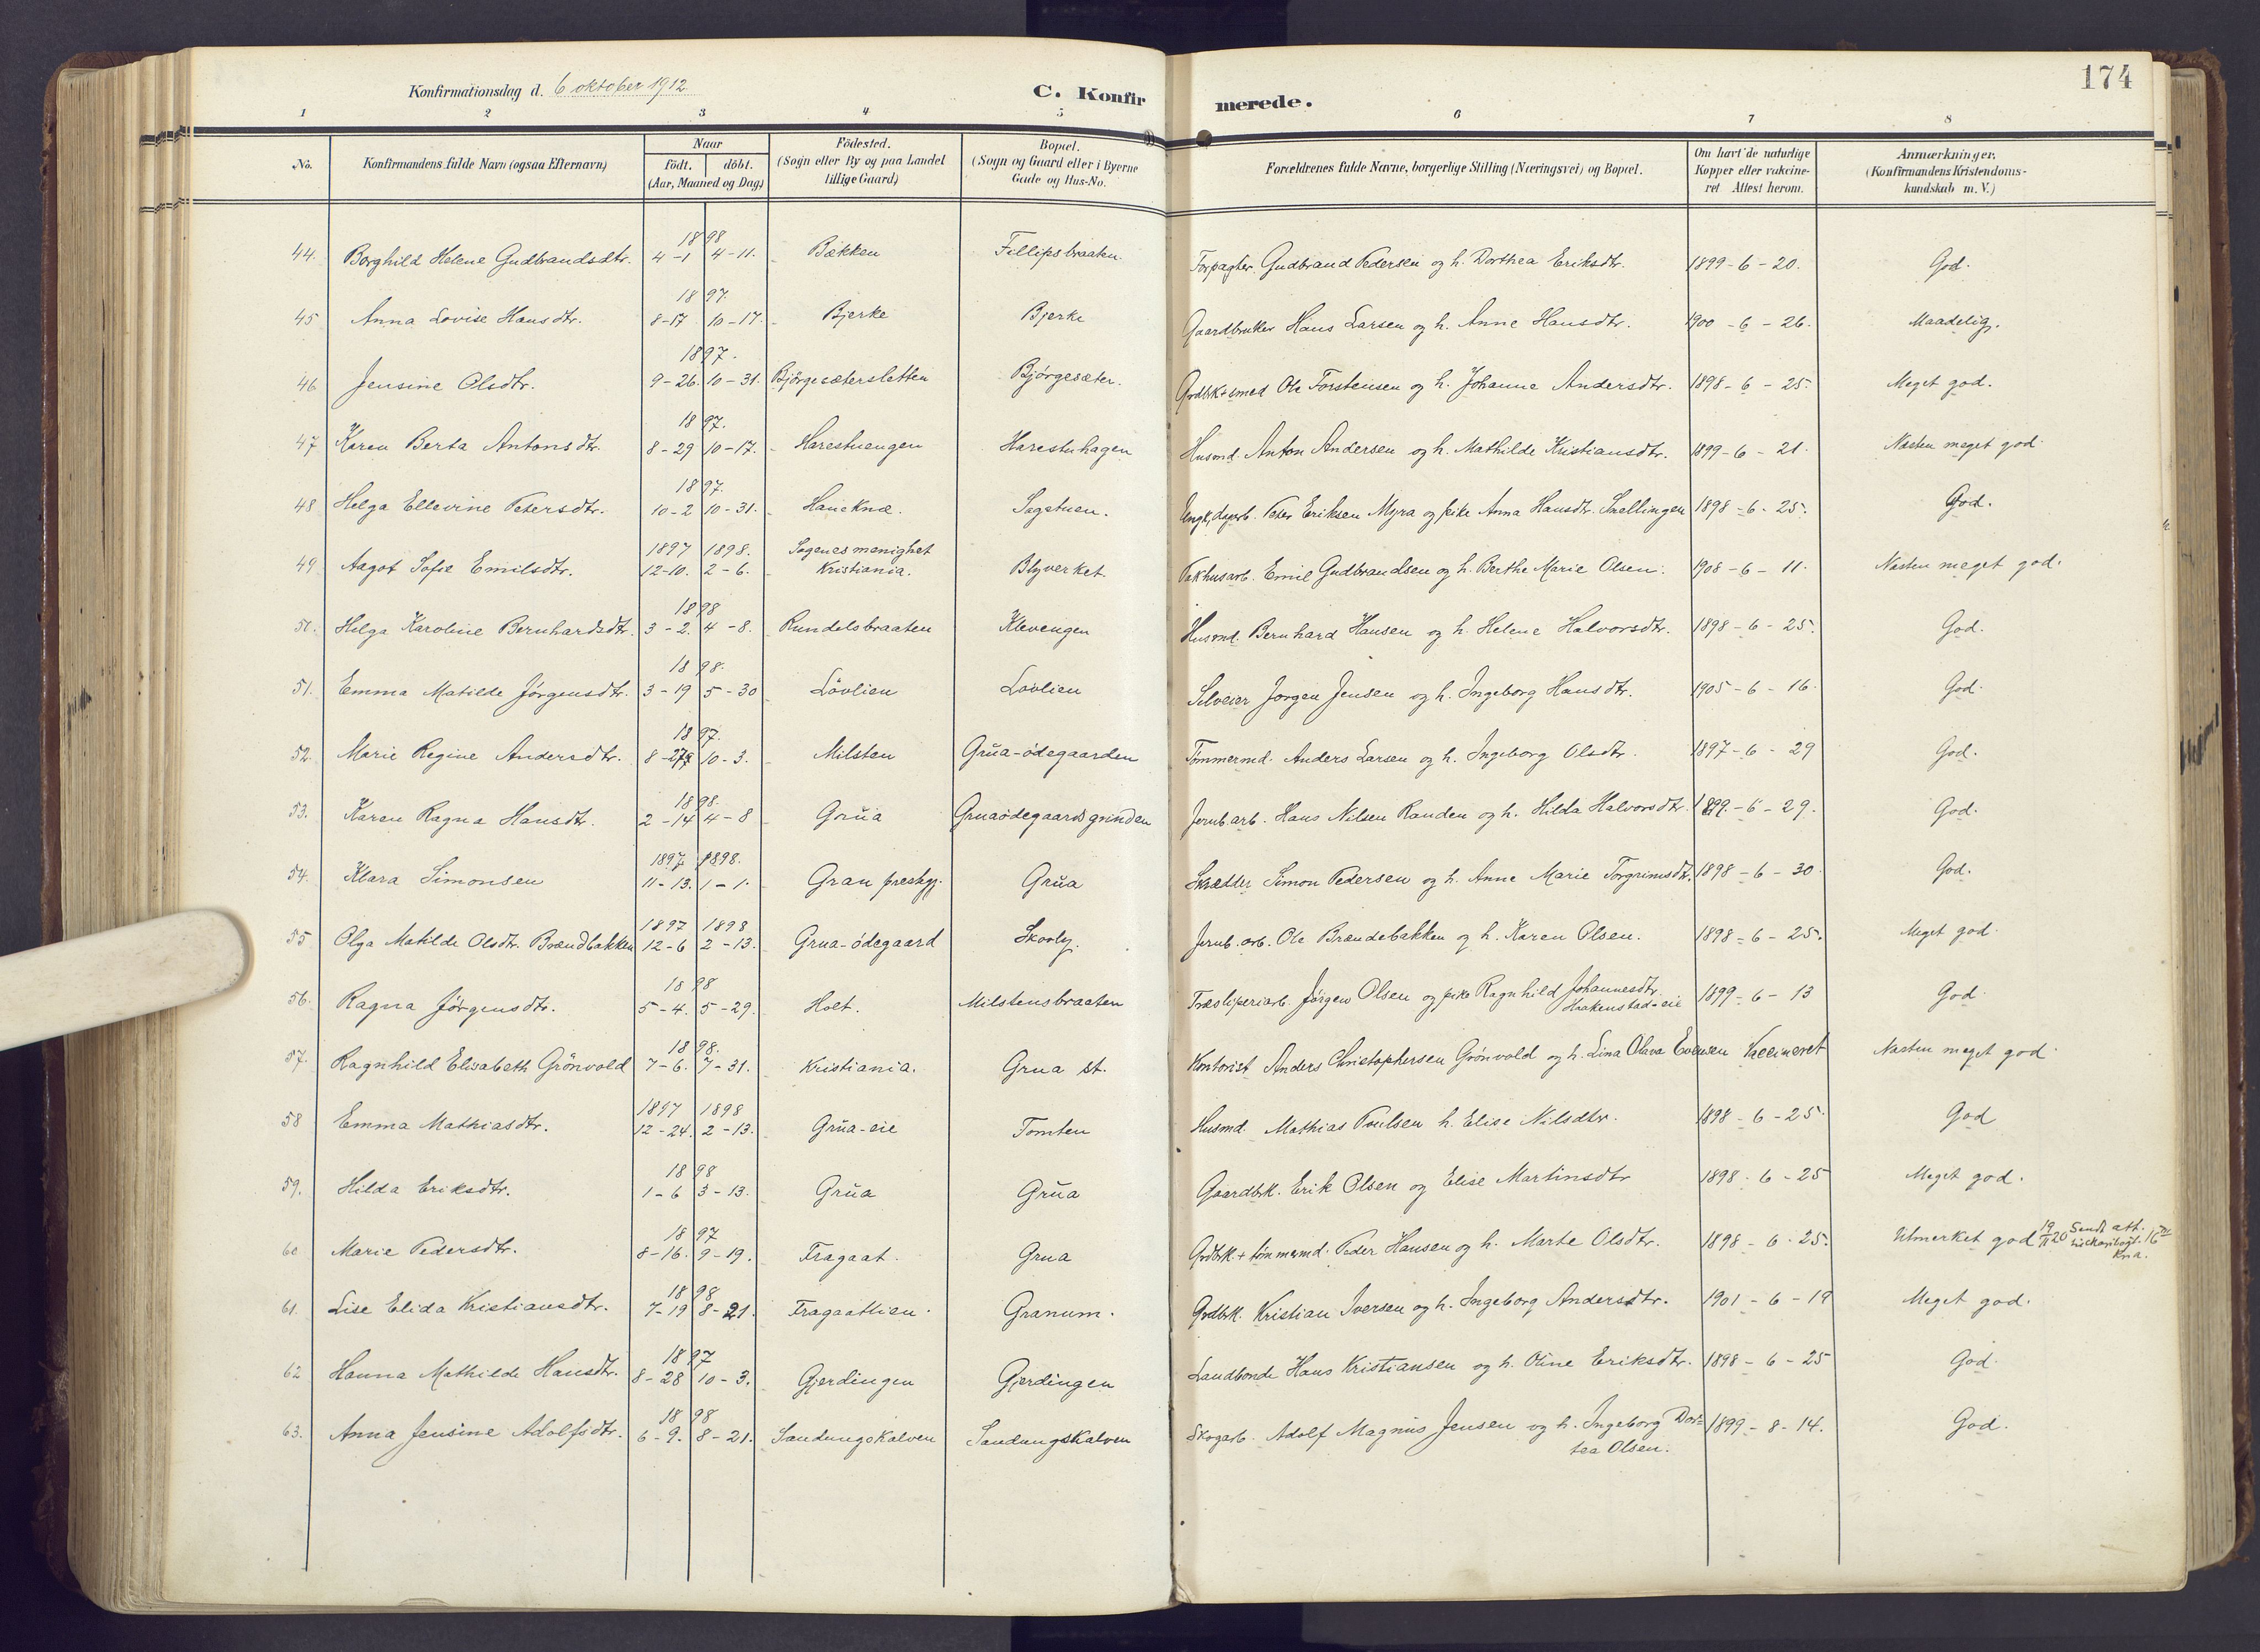 174
Konfirmationsdag d. 6 oktober 1912
C. Konfirmerede.
1 2 3 4 5 6 7 8
No. Konfirmandens fulde Navn (ogsaa Efternavn) Naar født. døbt. (Aar, Maaned og Dag) Födested. (Sogn eller By og paa Landet tillige Gaard) Bopæl. (Sogn og Gaard eller i Byerne Gade og Hus-No. Forældrenes fulde Navne, borgerlige Stilling (Næringsvei) og Bopæl. Om havt de naturlige Kopper eller vakcineret Attest herom. Anmærkninger. (Konfirmandens Kristendomskundskab m. V.)
44. Borghild Helene Gudbrandsdtr. 1898 4-1 4-11. Bakken Fillipsbraaten. Forpagter Gudbrand Pedersen og h. Dorthea Eriksdtr. 1899-6-20. God.
45 Anna Lovise Hansdtr. 1897. 8-17 10-17. Bjerke Bjerke Gaardbruker Hans Larsen og h. Anne Hansdtr. 1900-6-26. Maadelig.
46 Jensine Olsdtr. 1897. 9-26. 10-31. Bjørgesætersletten Bjørgesæter. Grdbk+smed Ole Torstensen og h. Johanne Andersdtr. 1898-6-25. Meget god.
47 Karen Berta Antonsdtr. 1897. 8-29 10-17. Harestuengen Harestuhagen Husmd. Anton Andersen og h. Mathilde Kristiansdtr. 1899-6-21. Næsten meget god
48 Helga Ellevine Petersdtr. 1897. 10-2 10-31. Haneknæ. Sagstuen. Ungk, dagarb. Peter Eriksen Myra og pike Anna Hansdtr. Snellingen 1898-6-25. God.
49 Aagot Sofie Emilsdtr. 1897 1898. 12-10. 2-6. Sagenes menighet Kristiania. Blyverket. Pakhusarb. Emil Gudbrandsen og h. Berthe Marie Olsen. 1908-6-11. Næsten meget god.
50. Helga Karoline Bernhardsdtr. 1898 3-2. 4-8. Rundelsbraaten Klevengen Husmd. Bernhard Hansen og h. Helene Halvorsdtr. 1898-6-25. God.
51. Emma Matilde Jørgensdtr. 1898. 3-19 5-30 Lövlien Lovlien Selveier Jørgen Jensen og h. Ingeborg Hansdtr. 1905-6-16. God.
52. Marie Regine Andersdtr. 1897. 8-27 10-3. Milsten Grua-ödegaarden Tømmermd. Anders Larsen og h. Ingeborg Olsdtr. 1897-6-29 God.
53. Karen Ragna Hansdtr. 1898. 2-14 4-8 Grua Gruaödegaardsgrinden Jernb. arb. Hans Nilsen Randen og h. Hilda Halvorsdtr. 1899.-6-29. God.
54. Klara Simonsen 1897 1898. 11-13. 1-1. Gran prestgj. Grua Skrædder Simon Pedersen og h. Anne Marie Torgrimsdtr. 1898-6-30. God.
55 Olga Matilde Olsdtr. Brændbakken 1897 1898 12-6 2-13. Grua-ödegaard Skovly. Jernb. arb. Ole Brændebakken og h. Karen Olsen. 1898-6-25. Meget god.
56. Ragna Jørgensdtr. 1898 5-4. 5-29. Holt. Milstensbraaten Træsliperiarb. Jørgen Olsen og pike Ragnhild Johannesdtr. Haakenstad-eie 1899-6-13 God.
57. Ragnhild Elisabeth Grönvold 1898. 7-6. 7-31. Kristiania. Grua st. Kontorist Anders Christophersen Grönvold og h. Lina Olava Evensen Vaccineret Næsten meget god.
58 Emma Mathiasdtr. 1897 1898 12-24. 2-13. Grua-eie Tomten Husmd. Mathias Poulsen h. Elise Nilsdtr. 1898-6-25. God
59. Hilda Eriksdtr. 1898 1-6 3-13. Grua Grua Gaardbk. Erik Olsen og Elise Martinsdtr 1898-6-25 Meget god.
60 Marie Pedersdtr. 1897 8-16. 9-19. Fragaat. Grua Grdbrk. + tömmermd. Peder Hansen og h. Marte Olsdtr. 1898-6-25. Utmerket god 19/11 20 Sendt att.
61. Lise Elida Kristiansdtr. 1898 7-19 8-21. Fragaatlien. Granum. Grdbrk. Kristian Iversen og h. Ingeborg Andersdtr. 1901-6-19 Meget god.
62 Hanna Mathilde Hansdtr. 1897 8-28 10-3. Gjerdingen Gjerdingen Landbonde Hans Kristiansen og h. Oline Eriksdtr. 1898-6-25 God.
63. Anna Jensine Adolfsdtr. 1898 6-9. 8-21. Sandungskalven Sandungskalven Skogarb. Adolf Magnus Jensen og h. Ingeborg Dortea Olsen. 1899-8-14. God.